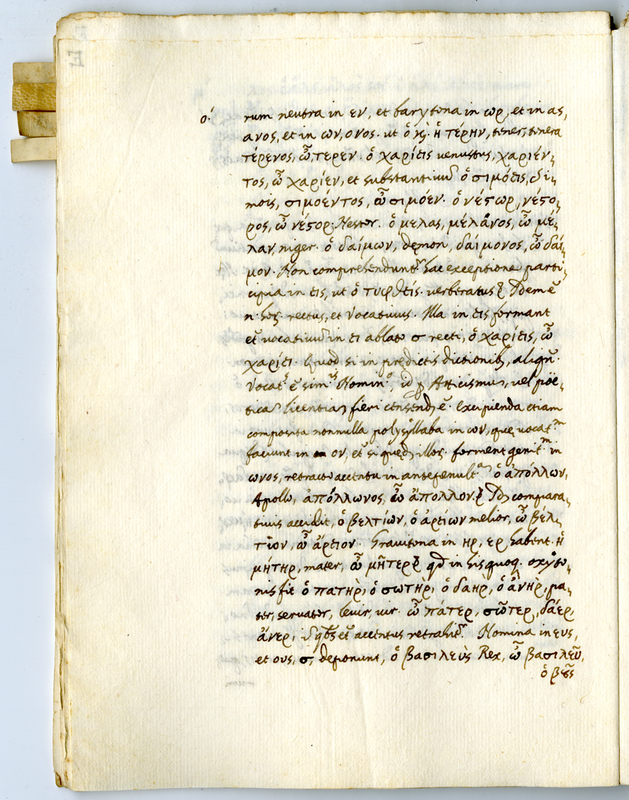 rum neutra in εν, et barytona in ωρ, et in ας,
ανος, et in ων, ονος. ut ὁ καὶ ἡ τέρην, tener, tenera
τέρενος, ὦ τέρεν. ὁ χαρίεις venustus, χαριέν-
τος, ὦ χαρίεν, et substantivum ὁ σιμόεις, Si-
mois, σιμοεντος, ὦ σιμόεν. ὁ νέστωρ, νέστο-
ρος, ὦ νέστορ, Nestor. ὁ μελας, μέλανος, ὦ με-
λαν, niger. ὁ δαίμων, demon, δαίμονος, ὦ δαῖ-
μον. Non comprehenduntur hac exceptione parti-
cipia in εις, ut ὁ τυφθείς verberatus. Idem
rectus, et vocativus. Illa in εις formant
et vocativum in ει ablato σ recti, ὁ χαρίεις, ὦ
χαρίει. Quod si in predictis dictionib, aliqn.
Vocat. est sim. Nomin., id p Atticismum, vel poë-
ticam licentiam fieri censendum est. Excipienda etiam
composita nonnulla polysyllaba in ων, que vocat.m
faciunt in ον, et si quedam illor. forment genit.m in
ωνος, retracto accentu in antepenult.am ὁ ἀπόλλων,
Apollo, ἀπόλλωνος, ὦ ἄπολλον. Idem compara-
tivis accidit, ὁ βελτίων, ὁ ἀρείων melior, ὦ βέλ-
τιον, ὦ ἄρειον. Gravitona in ηρ, ερ habent. ἡ
μήτηρ, mater, ὦ μῆτερ qd in his quoq. oxyto-
nis fit ὁ πατὴρ, ὁ σωτήρ, ὁ δαηρ, ὁ ἀνὴρ, pa-
ter, servator, levir, vir. ὦ πάτερ, σῶτερ, δᾶερ,
ἄνερ, accentus retrahit. Nomina in ευς,
et ους, σ, deponunt, ὁ βασιλεὺς Rex, ὦ βασιλεῦ,
ὁ βοῦς